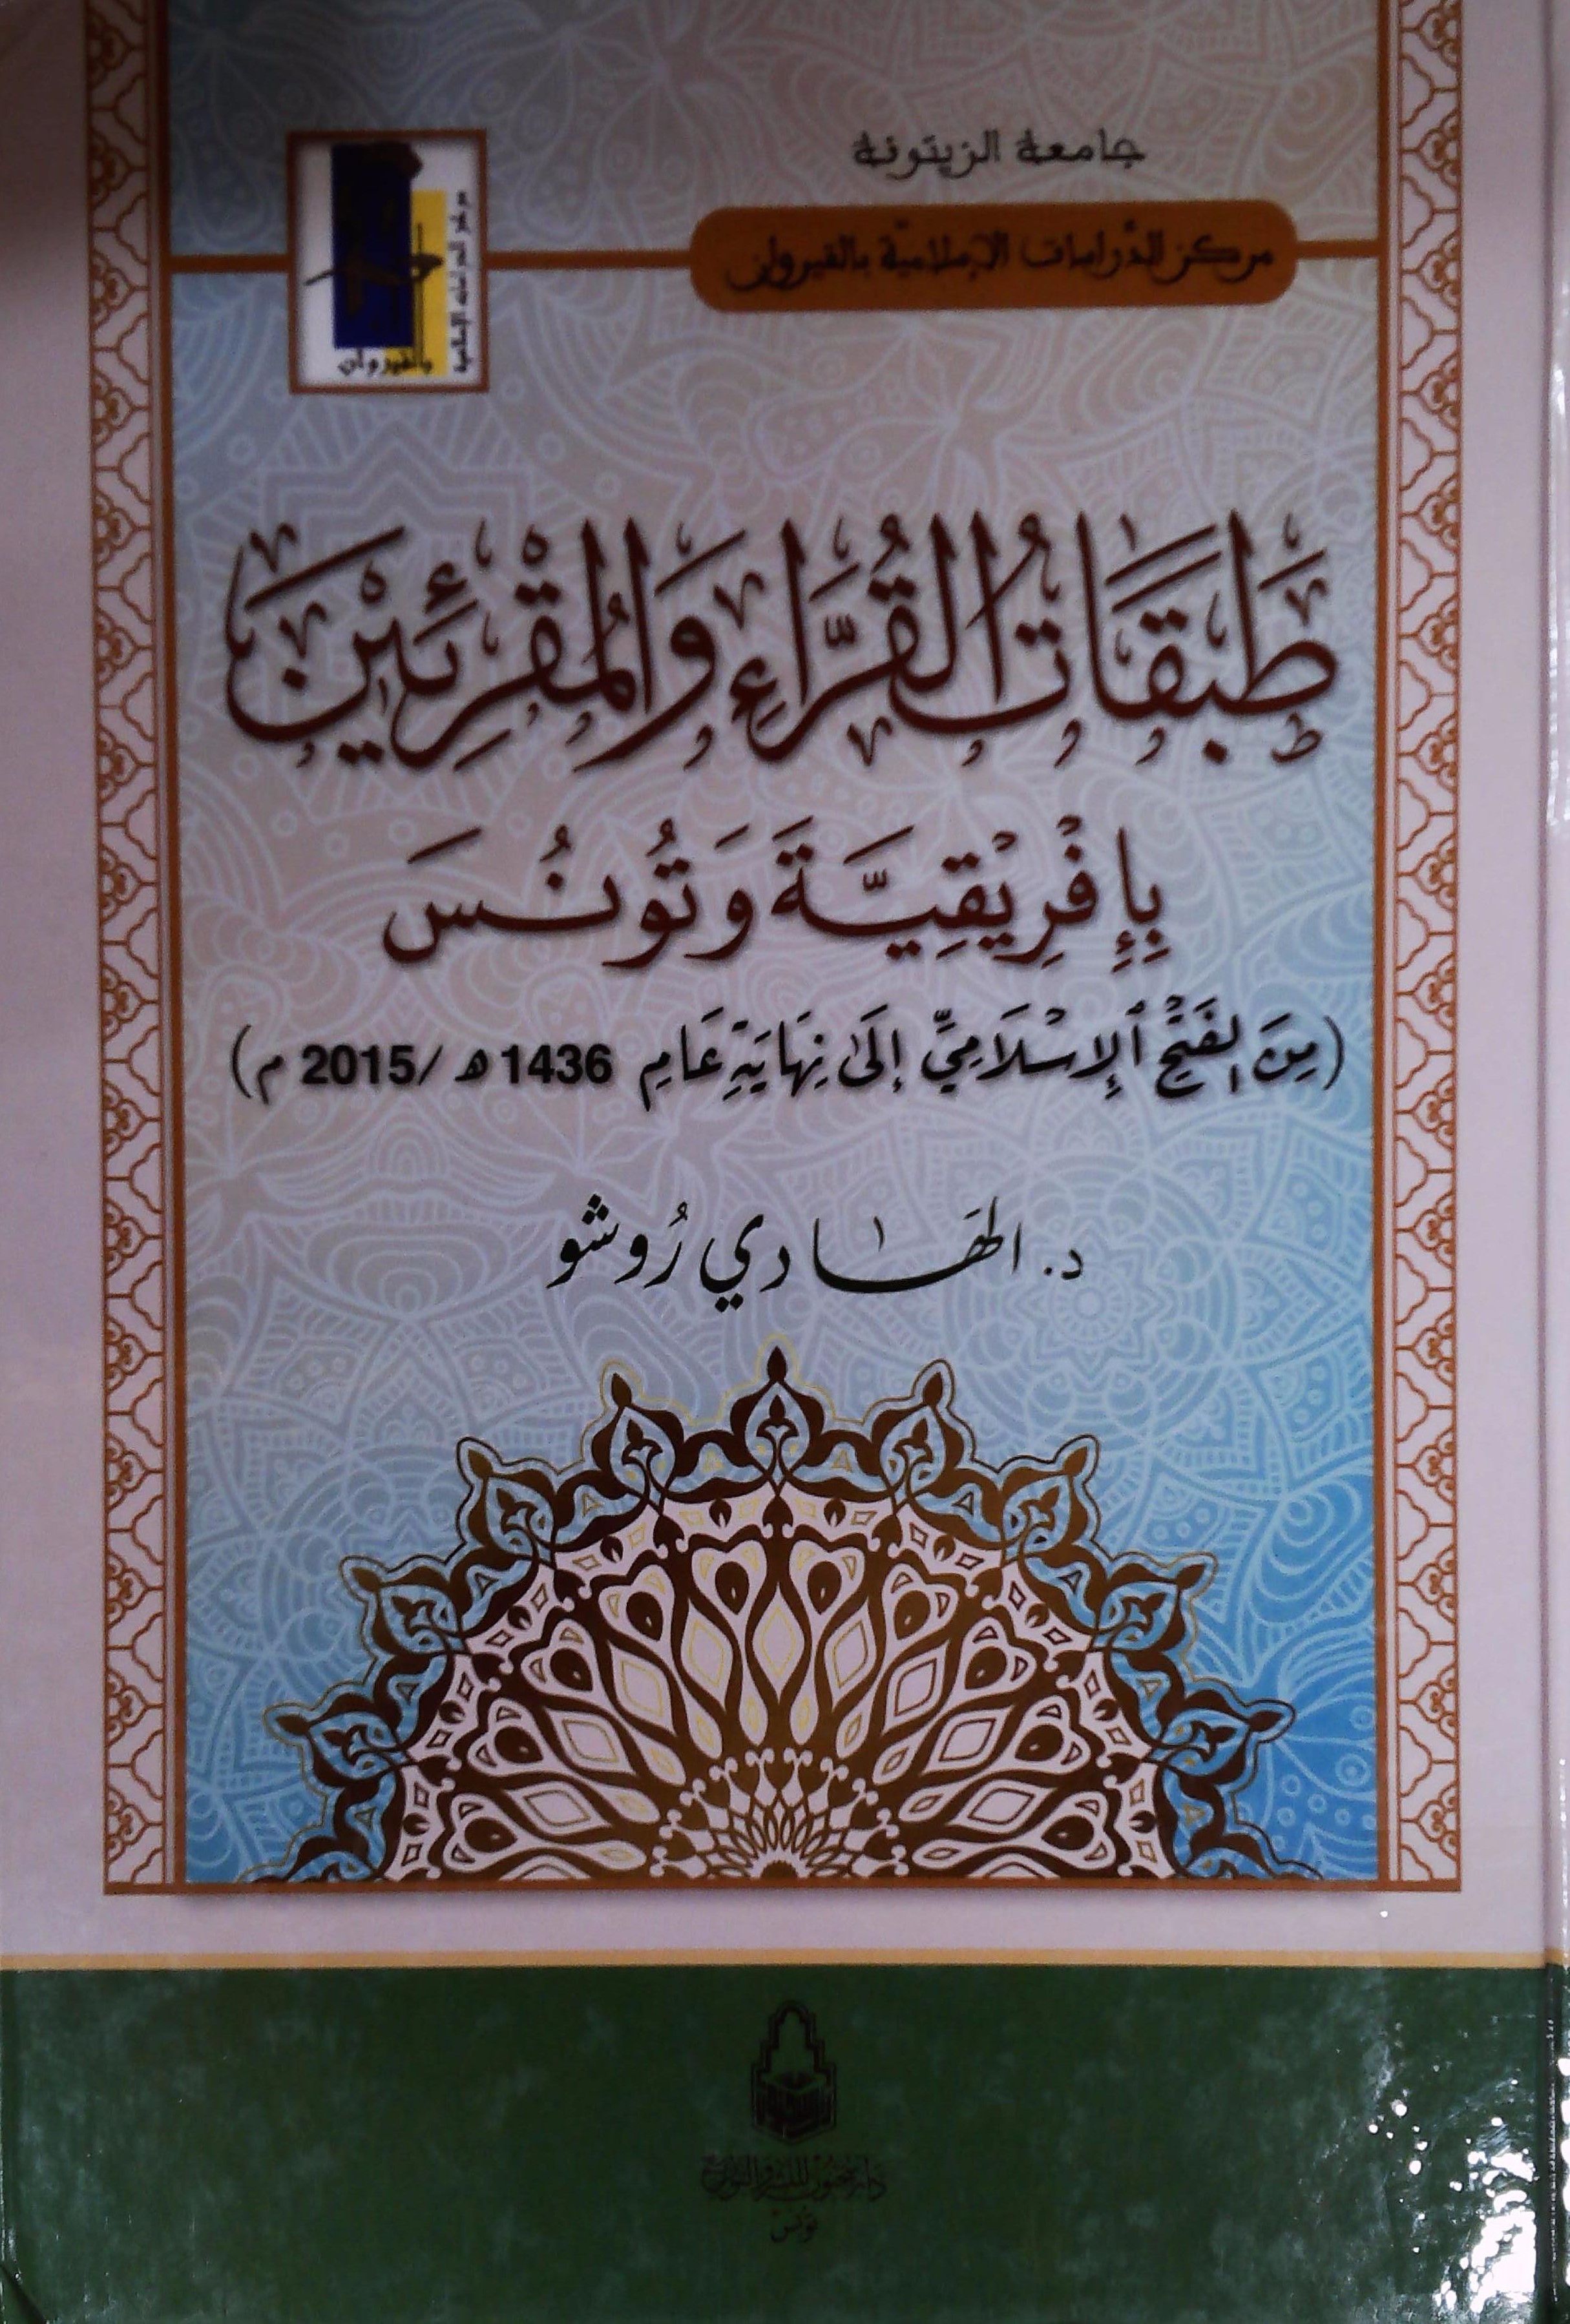 جامعة الزيتونة
مركز الدّراسات الإسلاميّة بالقيروان
مركز الدراسات الإسلامية
بالقيروان
طَبَقَاتُ القُرَّاءِ وَالمُقْرِئِيْنَ
بِإِفْرِيْقِيَّةَ وَتُونُسَ
(مِنَ الفَتْحِ الإِسْلَامِيِّ إِلَى نِهَايَةِ عَامِ 1436 هـ /2015 م)
د. الهَادِي رُوشو
دار سحنون للنشر والتوزيع
تونس